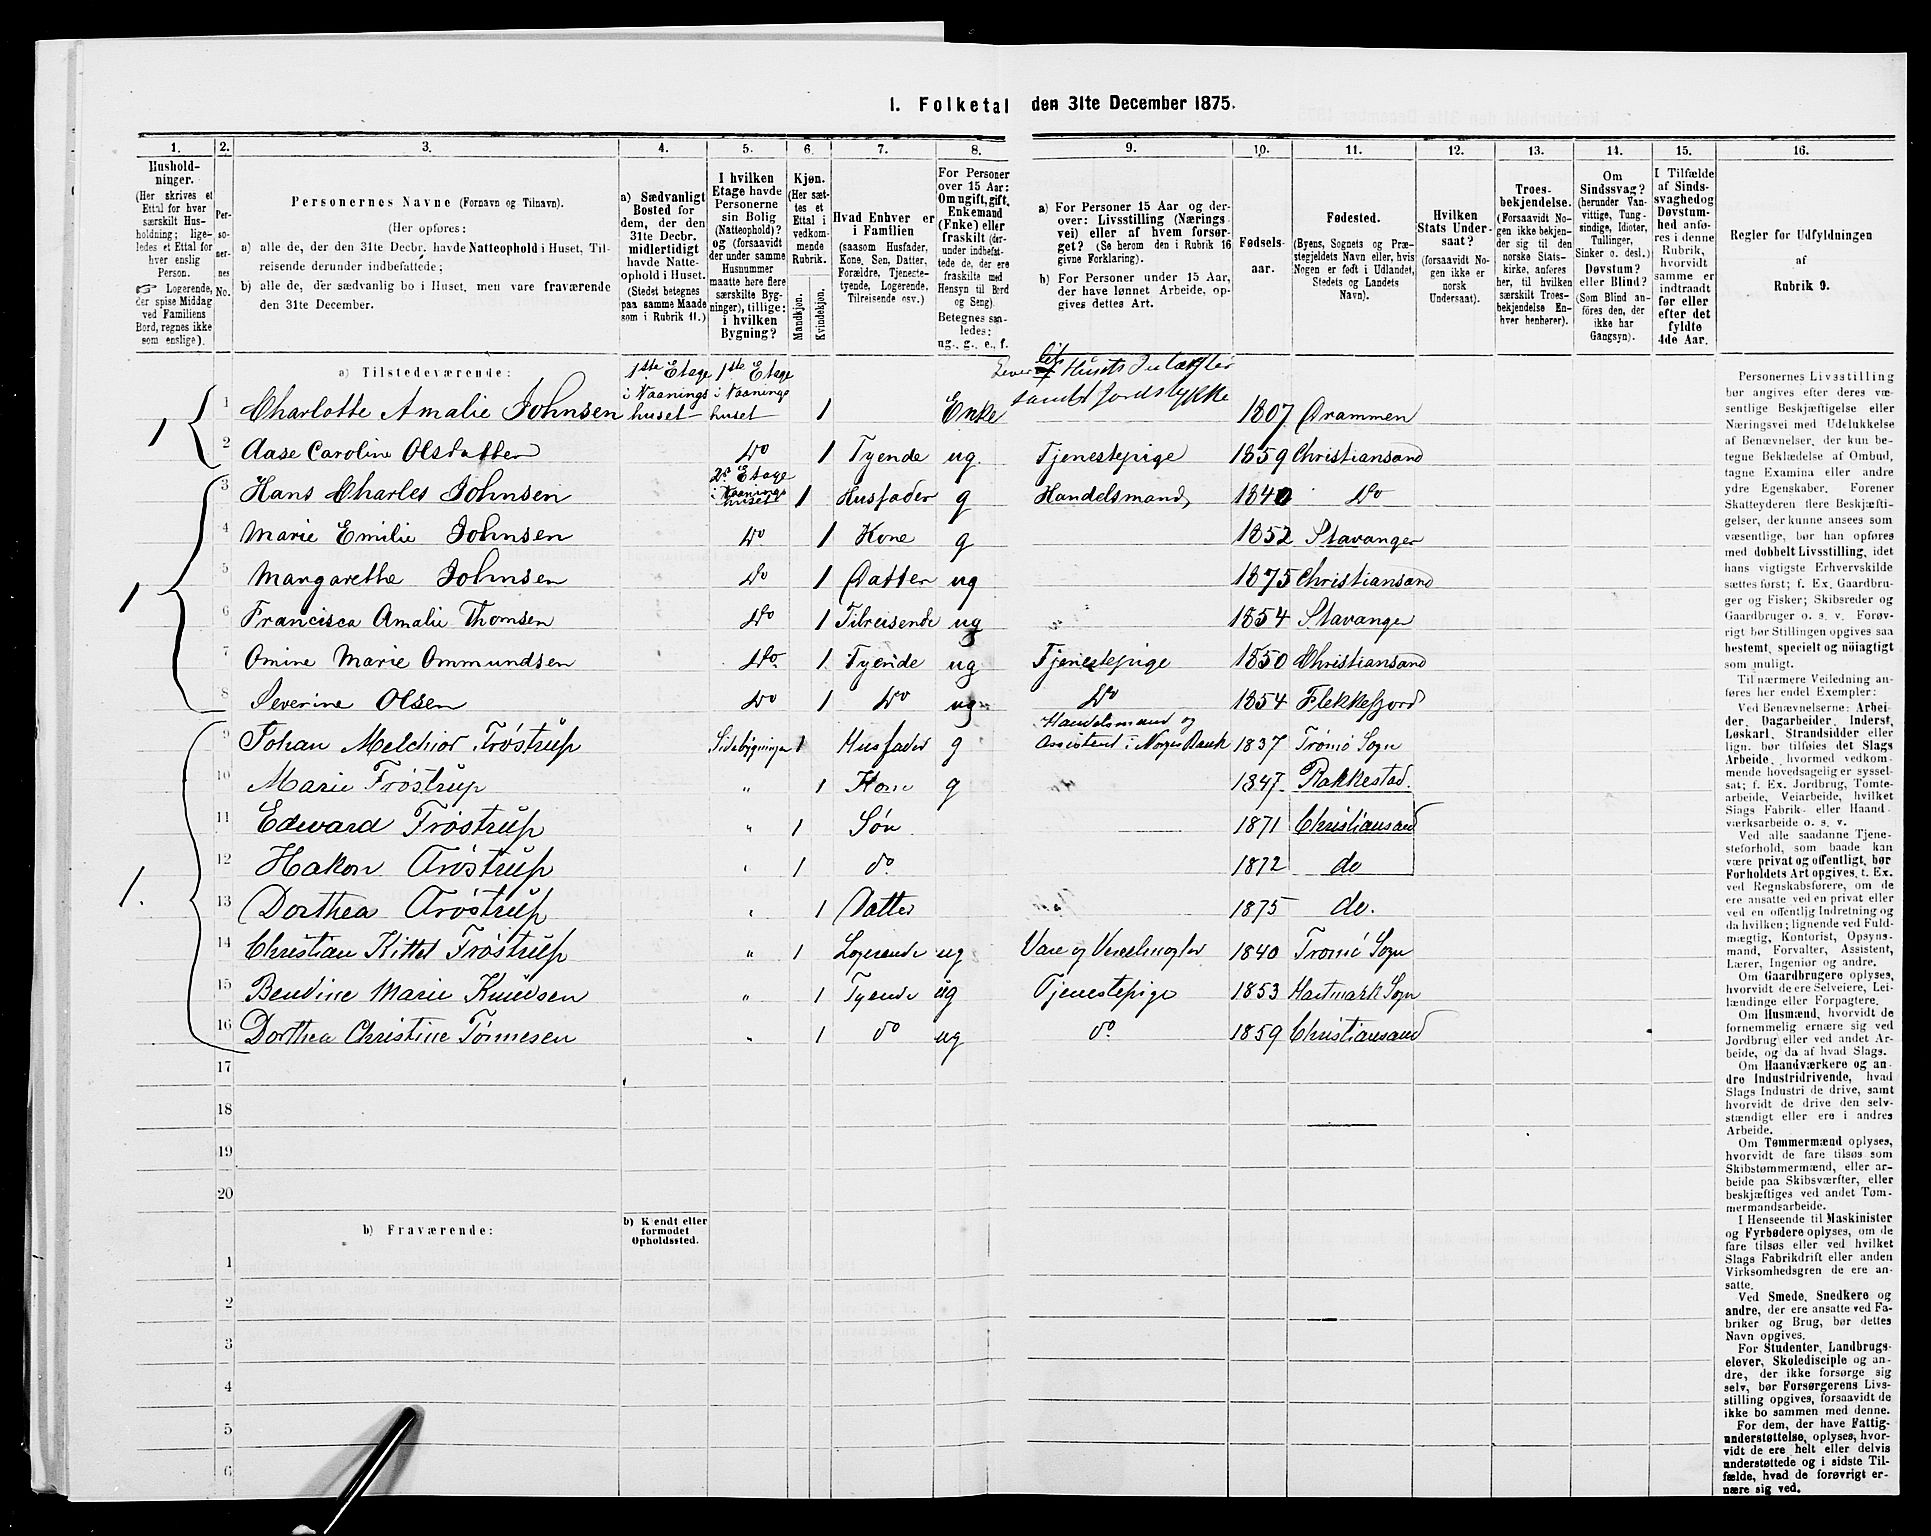 1. Folketal den 31te December 1875.
1. 2. 3. 4. 5. 6. 7. 8. 9. 10. 11. 12. 13. 14. 15. 16.
Hushold-
ninger.
(Her skrives et
Ettal for hver
særskilt Hus-
holdning; lige-
ledes et Ettal for
hver enslig
Person.
☞ Logerende,
der spise Middag
ved Familiens
Bord, regnes ikke
som enslige).
Per-
so-
ner-
nes
No.
Personernes Navne (Fornavn og Tilnavn).
(Her opføres:
a) alle de, der den 31te Decbr. havde Natteophold i Huset, Til-
reisende derunder indbefattede;
b) alle de, der sædvanlig bo i Huset, men vare fraværende
den 31te December.
a) Sædvanligt
Bosted for
dem, der den
31te Decbr.
midlertidigt
havde Natte-
ophold i Huset.
(Stedet betegnes
paa samme Maade
som i Rubrik 11.)
I hvilken
Etage havde
Personerne
sin Bolig
(Natteophold)?
og (forsaavidt
der under samme
Husnummer
maatte høre flere
særskilte Byg-
ninger), tillige:
i hvilken
Bygning?
Kjøn.
(Her sæt-
tes et
Ettal i
vedkom-
mende
Rubrik.
Mandkjøn.
Kvindekjøn.
Hvad Enhver er
i Familien
(saasom Husfader,
Kone, Søn, Datter,
Forældre, Tjeneste-
tyende, Logerende,
Tilreisende osv.)
For Personer
over 15 Aar:
Om ugift, gift,
Enkemand
(Enke) eller
fraskilt (der-
under indbefat-
tede de, der ere
fraskilte med
Hensyn til Bord
og Seng).
Betegnes saa-
ledes:
ug., g., e., f.
a) For Personer 15 Aar og der-
over: Livsstilling (Nærings-
vei) eller af hvem forsør-
get? (Se herom den i Rubrik 16
givne Forklaring).
b) For Personer under 15 Aar,
der have lønnet Arbeide, op-
gives dettes Art.
Fødsels-
aar.
Fødested.
(Byens, Sognets og Præ-
stegjeldets Navn eller, hvis
Nogen er født i Udlandet,
Stedets og Landets
Navn).
Hvilken
Stats Under-
saat?
(forsaavidt No-
gen ikke er
norsk
Undersaat).
Troes-
bekjendelse.
(Forsaavidt No-
gen ikke bekjen-
der sig til den
norske Stats-
kirke, anføres
her, til hvilken
særskilt Troes-
bekjendelse En-
hver henhører).
Om
Sindssvag?
(herunder Van-
vittige, Tung-
sindige, Idioter,
Tullinger,
Sinker o. desl.)
Døvstum?
eller Blind?
(Som Blind an-
føres den, der
ikke har
Gangsyn).
I Tilfælde
af Sinds-
svaghed og
Døvstum-
hed anfø-
res i denne
Rubrik,
hvorvidt
samme er
indtraadt
før eller
efter det
fyldte
4de Aar.
Regler for Udfyldningen
af
Rubrik 9.
a) Tilstedeværende:
1 1 Charlotte Amalie Johnsen 1ste Etage i Vaaningshuset 1ste Etage i Vaaningshuset 1 Enke Lever Husets samt Jordstykke 1807 Drammen
2 Aase Caroline Olsdatter Do 1 Tyende ug. Tjenestepige 1859 Christiansand
1 3 Hans Charles Johnsen 2d Etage i Vaaningshuset 1 Husfader g Handelsmand 1840 Do
4 Marie Emilie Johnsen Do 1 Kone g 1852 Stavanger
5 Margarethe Johnsen Do 1 Datter ug 1875 Christiansand
6 Francisca Amalie Thomsen Do 1 Tilreisende ug 1854 Stavanger
7 Omine Marie Ommundsen Do. 1 Tyende ug Tjenestepige 1850 Christiansand
8 Severine Olsen Do 1 Do ug Do 1854 Flekkefjord
1. 9 Johan Melchior Trøstrup Sidebygningen 1 Husfader g Handelsmand og Assistent i Norges Bank 1837 Tromø Sogn
10 Marie Frøstrup " 1 Kone g 1847 Rakkestad.
11 Edward Frøstrup " 1 Søn 1871 Christiansand
12 Hakon Frøstrup " 1 do 1872 do
13 Dorthea Frøstrup " 1 Datter 1875 do.
14 Christian Kittel Frøstrup " 1 Logerende ug Vare og Vexelmægler 1840 Tromø Sogn
15 Bendine Marie Knudsen " 1 Tyende ug Tjenestepige 1853 Hartmark Sogn
16 Dorthea Christine Tønnesen " 1 do ug do 1859 Christiansand
17
18
19
20
b) Fraværende: b) Kjendt eller
formodet
Opholdssted.
1
2
3
4
5
6
Personernes Livsstilling
bør angives efter deres væ-
sentlige Beskjæftigelse eller
Næringsvei med Udelukkelse
af Benævnelser, der kun be-
tegne Beklædelse af Ombud,
tagne Examina eller andre
ydre Egenskaber. Forener
Skatteyderen flere Beskjæfti-
gelser, der kunne ansees som
væsentlige, bør han opføres
med dobbelt Livsstilling, idet
hans vigtigste Erhvervskilde
sættes først; f. Ex. Gaardbru-
ger og Fisker; Skibsreder og
Gaardbruger o. s. v. Forøv-
rigt bør Stillingen opgives saa
bestemt, specielt og nöiagtigt
som muligt.
Til nærmere Veiledning an-
føres her endel Exempler:
Ved Benævnelserne: Arbei-
der, Dagarbeider, Inderst,
Løskarl, Strandsidder eller
lign. bør tilføies det Slags
Arbeide, hvormed vedkom-
mende hovedsagelig er syssel-
sat; f. Ex. Jordbrug, Tomte-
arbeide, Veiarbeide, hvilket
Slags Fabrik- eller Haand-
værksarbeide o. s. v.
Ved alle saadanne Tjene-
steforhold, som baade kan
være privat og offentligt, bør
Forholdets Art opgives, t. Ex.
ved Regnskabsførere, om de
ere ansatte ved en privat eller
ved en offentlig Indretning og
da hvilken; lignende ved Fuld-
mægtig, Kontorist, Opsyns-
mand, Forvalter, Assistent,
Lærer, Ingeniør og andre.
Om Gaardbrugere oplyses,
hvorvidt de ere Selveiere, Lei-
lændinge eller Forpagtere.
Om Husmænd, hvorvidt de
fornemmelig ernære sig ved
Jordbrug eller ved andet Ar-
beide, og da af hvad Slags.
Om Haandværkere og an-
dre Industridrivende, hvad
Slags Industri de drive, samt
hvorvidt de drive den selv-
stændigt eller ere i andres
Arbeide.
Om Tømmermænd oplyses,
hvorvidt de fare tilsøs som
Skibstømmermænd, eller ar-
beide paa Skibsværfter, eller
beskjæftiges ved andet Tøm-
mermandsarbeide.
I Henseende til Maskinister
og Fyrbødere oplyses, om de
fare tilsøs eller ved hvilket
Slags Fabrikdrift eller anden
Virksomhedsgren de ere an-
satte.
Ved Smede, Snedkere og
andre, der ere ansatte ved Fa-
briker og Brug, bør dettes
Navn opgives.
For Studenter, Landbrugs-
elever, Skoledisciple og an-
dre, der ikke forsørge sig
selv, bør Forsørgerens Livs-
stilling opgives, forsaavidt de
ikke bo sammen med denne.
For dem, der have Fattig-
understøttelse, oplyses, hvor-
vidt de ere helt eller delvis
understøttede og i sidste Til-
fælde, hvad de forøvrigt er-
nære sig ved.